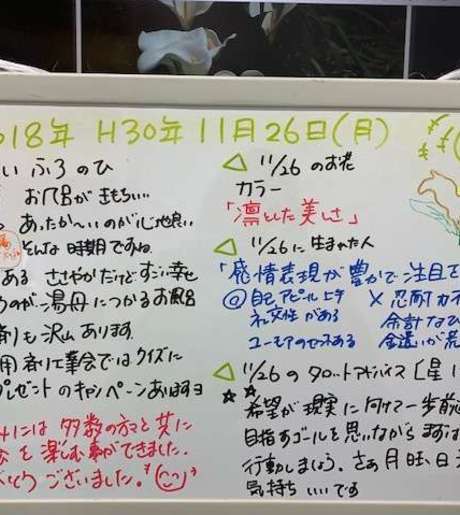 018年 H30年 11月26日(月)
い ふろのひ
お風呂が きもちい…
あったか〜いのが心地良い
そんな 時期ですね
ある ささやかだけどすごい幸せ
のが湯舟につかるお風呂
剤も沢山 あります。
用剤工業会では クイズに
プレゼントの キャンペーンあります
には 多数の方々と 共に
を 楽しむ事ができました。
とうございました。
△ 11/26 のお花
カラー
「凛とした 美しさ」
△ 11/26に 生まれた人
「感情表現が 豊かで 注目を
@ 自己アピール上手 × 忍耐力
社交性がある 余計な
ユーモアのセンスある 金遣いが荒
△ 11/26の タロットアドバイス [星
☆☆ 希望が 現実に 向けて一歩前
目指すゴールを思いながら まずは
行動しましょう。さぁ 月曜日
気持ちいいです